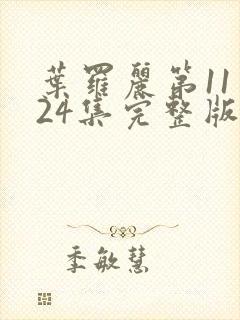 葉羅麗第11
24集完整版
季敏慧